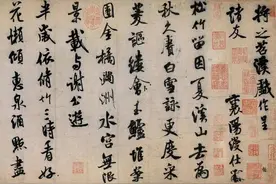 將之苕溪戲作呈
諸友
襄陽漫仕黻
松竹留因夏溪山去為
秋久賡白雪詠更度采
菱謳縷會玉鱸堆案
團金橘滿洲水宮無限
景載與謝公遊
半歲依修竹三時看好
花懶傾惠泉酒點盡